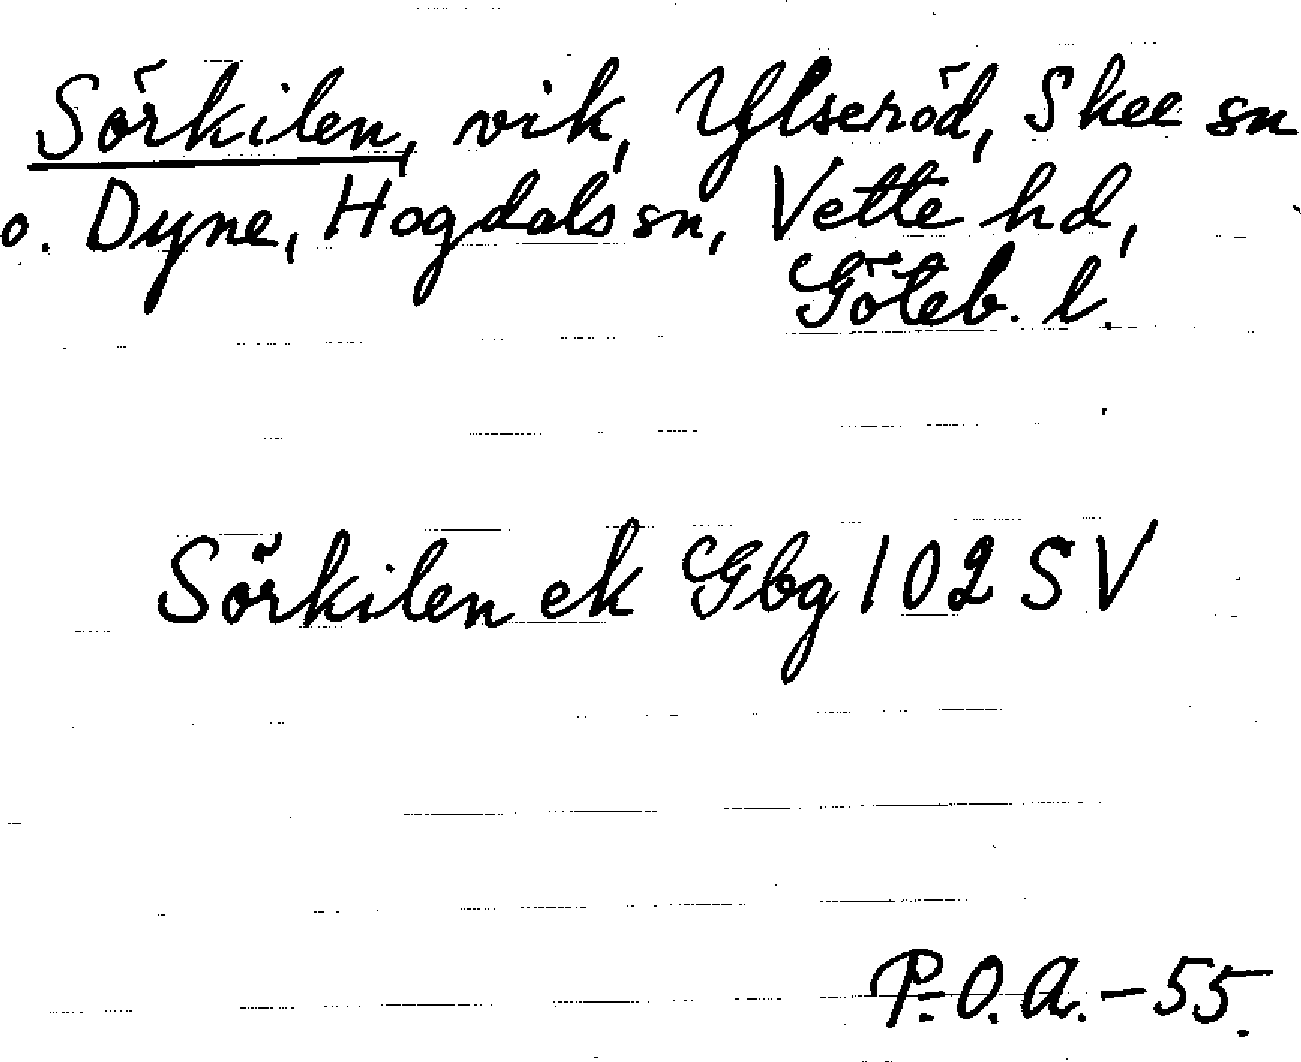 Sörkilen, vik, Ylseröd, Skee sn
o. Dyne, Hogdals sn, Vette hd,
Göteb. l.
Sörkilen ek Gbg 102 SV
P.O.A. - 55.